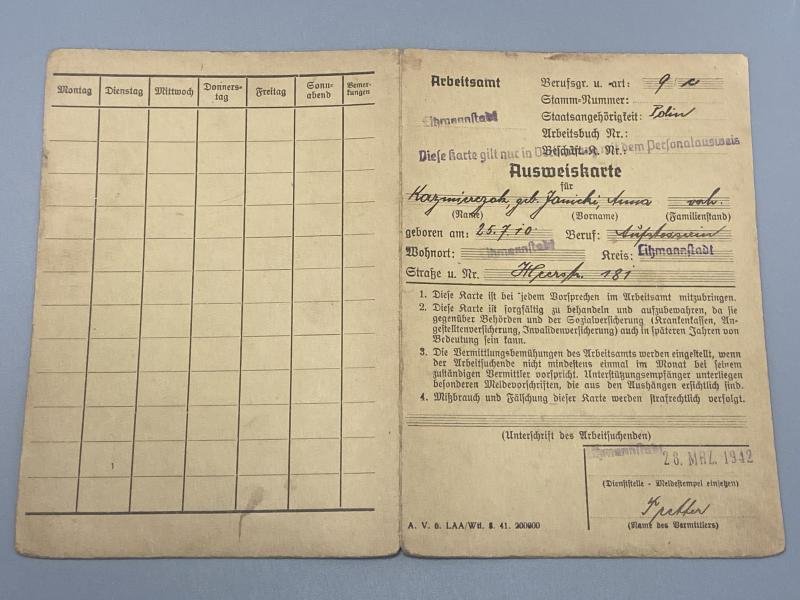 Montag Dienstag Mittwoch Donners-tag Freitag Sonn-abend Bemer-kungen
Arbeitsamt
Litzmannstadt
Berufsgr. u. -art: 9 c
Stamm-Nummer:
Staatsangehörigkeit: Polin
Arbeitsbuch Nr.:
Beschäft.-K. Nr.:
Diese Karte gilt nur in Verbindung mit dem Personalausweis
Ausweiskarte
für
geb. Janicki, Anna verh.
(Name) (Vorname) (Familienstand)
geboren am: 25.7.10. Beruf:
Wohnort: Litzmannstadt Kreis: Litzmannstadt
Straße u. Nr. 181
1. Diese Karte ist bei jedem Vorsprechen im Arbeitsamt mitzubringen.
2. Diese Karte ist sorgfältig zu behandeln und aufzubewahren, da sie
gegenüber Behörden und der Sozialversicherung (Krankenkassen, An-
gestelltenversicherung, Invalidenversicherung) auch in späteren Jahren von
Bedeutung sein kann.
3. Die Vermittlungsbemühungen des Arbeitsamts werden eingestellt, wenn
der Arbeitsuchende nicht mindestens einmal im Monat bei seinem
zuständigen Vermittler vorspricht. Unterstützungsempfänger unterliegen
besonderen Meldevorschriften, die aus den Aushängen ersichtlich sind.
4. Mißbrauch und Fälschung dieser Karte werden strafrechtlich verfolgt.
(Unterschrift des Arbeitsuchenden)
Litzmannstadt 28. MRZ. 1942
(Dienststelle - Meldestempel einsetzen)
(Name des Vermittlers)
A. V. 6. LAA/Wtl. 8. 41. 200000